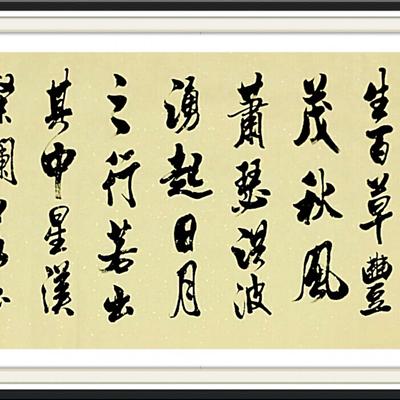 生百草豐
茂秋風
蕭瑟洪波
湧起日月
之行若出
其中星漢
粲爛